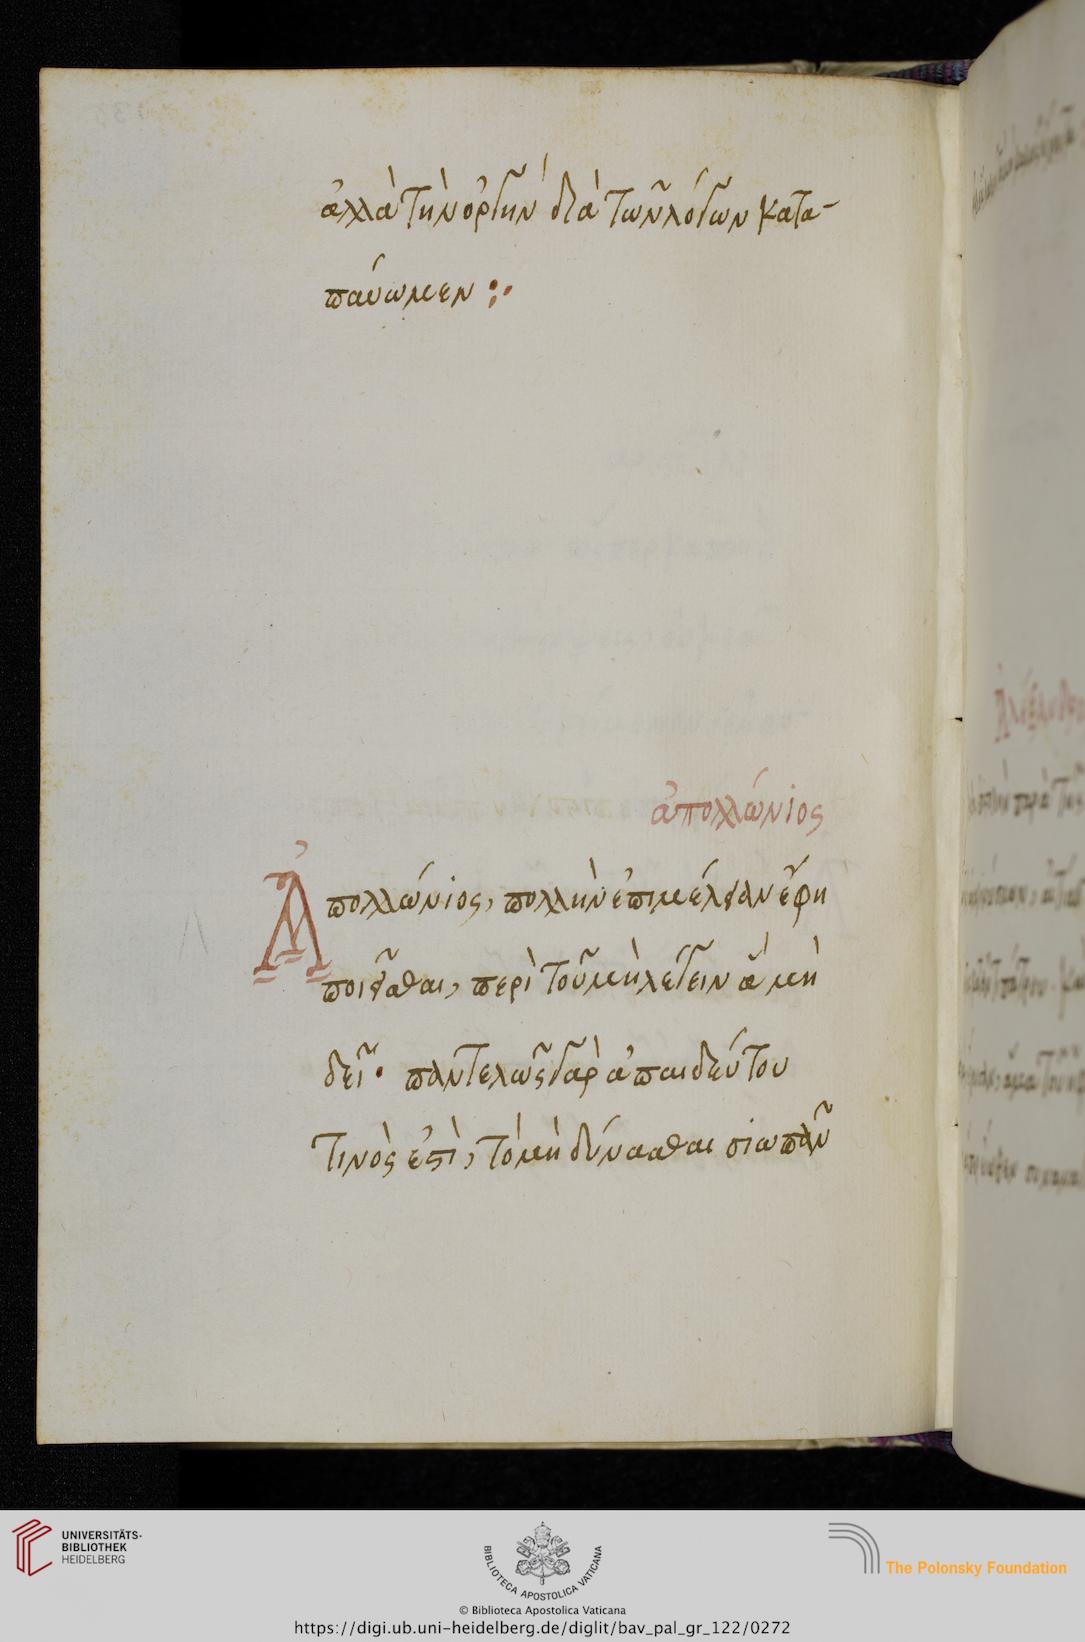 ἀλλὰ τὴν ὀργὴν διὰ τῶν λόγων κατα-
παύωμεν :·
ἀπολλώνιος
Ἀπολλώνιος, πολλὴν ἐπιμέλειαν ἔφη
ποιεῖσθαι, περὶ τοῦ μὴ λέγειν ἃ μὴ
δεῖ· παντελῶς γὰρ ἀπαιδεύτου
τινὸς ἐστὶ, τὸ μὴ δύνασθαι σιωπᾶν
UNIVERSITÄTS-
BIBLIOTHEK
HEIDELBERG
BIBLIOTECA APOSTOLICA VATICANA
The Polonsky Foundation
© Biblioteca Apostolica Vaticana
https://digi.ub.uni-heidelberg.de/diglit/bav_pal_gr_122/0272